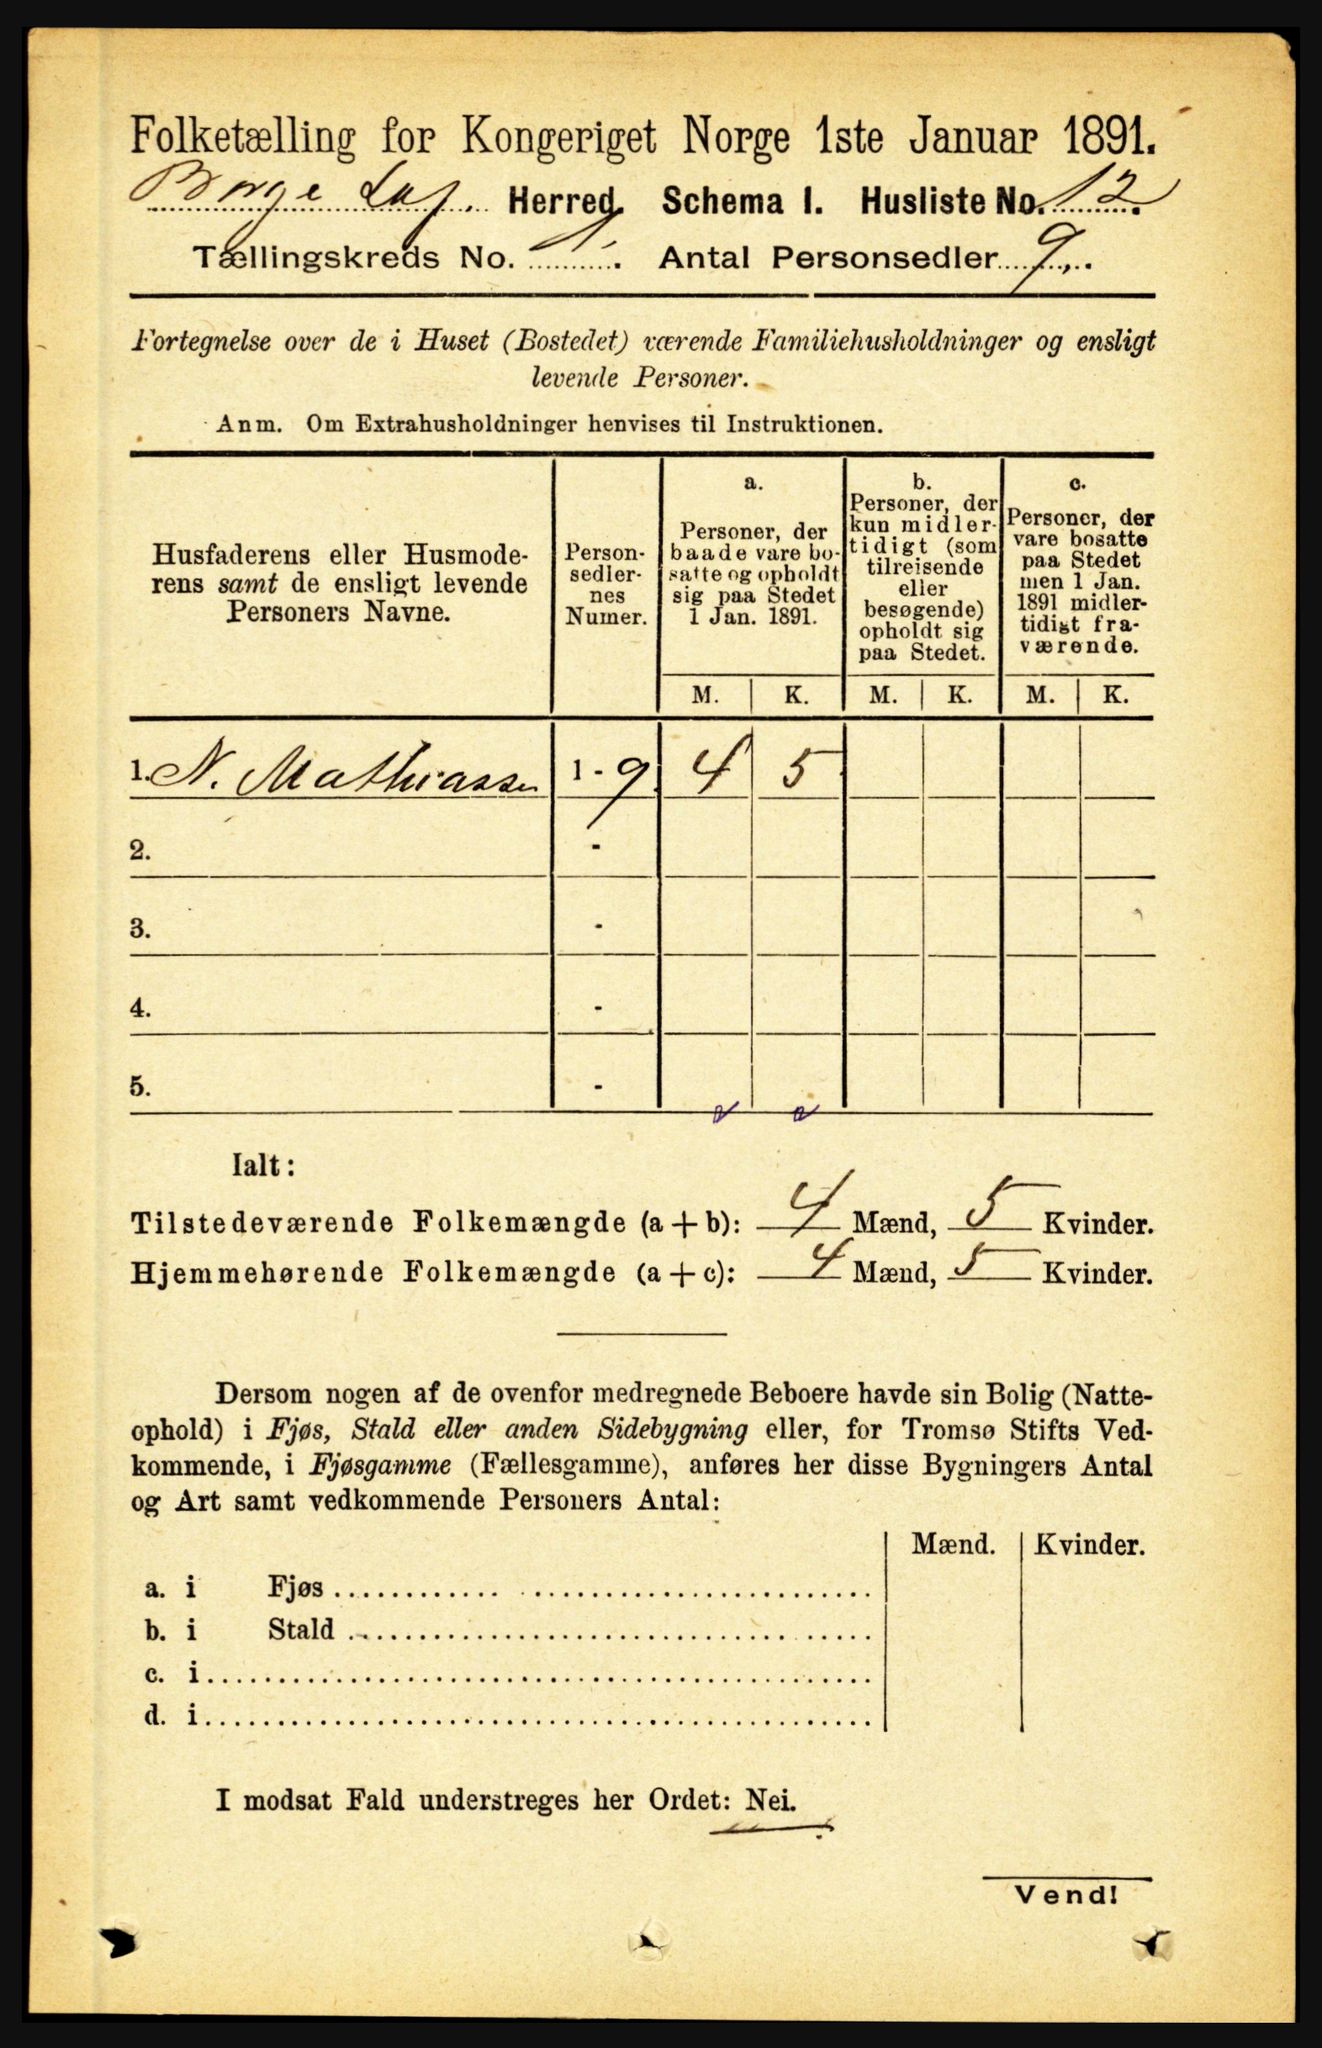 Folketælling for Kongeriget Norge 1ste Januar 1891.
Borge Lof. Herred. Schema I. Husliste No. 12.
Tællingskreds No. 1. Antal Personsedler 9.
Fortegnelse over de i Huset (Bostedet) værende Familiehusholdninger og ensligt
levende Personer.
Anm. Om Extrahusholdninger henvises til Instruktionen.
Husfaderens eller Husmode-
rens samt de ensligt levende
Personers Navne.
Person-
sedler-
nes
Numer.
a.
Personer, der
baade vare bo-
satte og opholdt
sig paa Stedet
1 Jan. 1891.
b.
Personer, der
kun midler-
tidigt (som
tilreisende
eller
besøgende)
opholdt sig
paa Stedet.
c.
Personer, der
vare bosatte
paa Stedet
men 1 Jan.
1891 midler-
tidigt fra-
værende.
M. K. M. K. M. K.
1. N. Mathiassen 1 - 9 4 5
2. -
3. -
4. -
5. -
Ialt:
Tilstedeværende Folkemængde (a + b): 4 Mænd, 5 Kvinder.
Hjemmehørende Folkemængde (a + c): 4 Mænd, 5 Kvinder.
Dersom nogen af de ovenfor medregnede Beboere havde sin Bolig (Natte-
ophold) i Fjøs, Stald eller anden Sidebygning eller, for Tromsø Stifts Ved-
kommende, i Fjøsgamme (Fællesgamme), anføres her disse Bygningers Antal
og Art samt vedkommende Personers Antal:
Mænd. Kvinder.
a. i Fjøs
b. i Stald
c. i
d. i
I modsat Fald understreges her Ordet: Nei.
Vend!